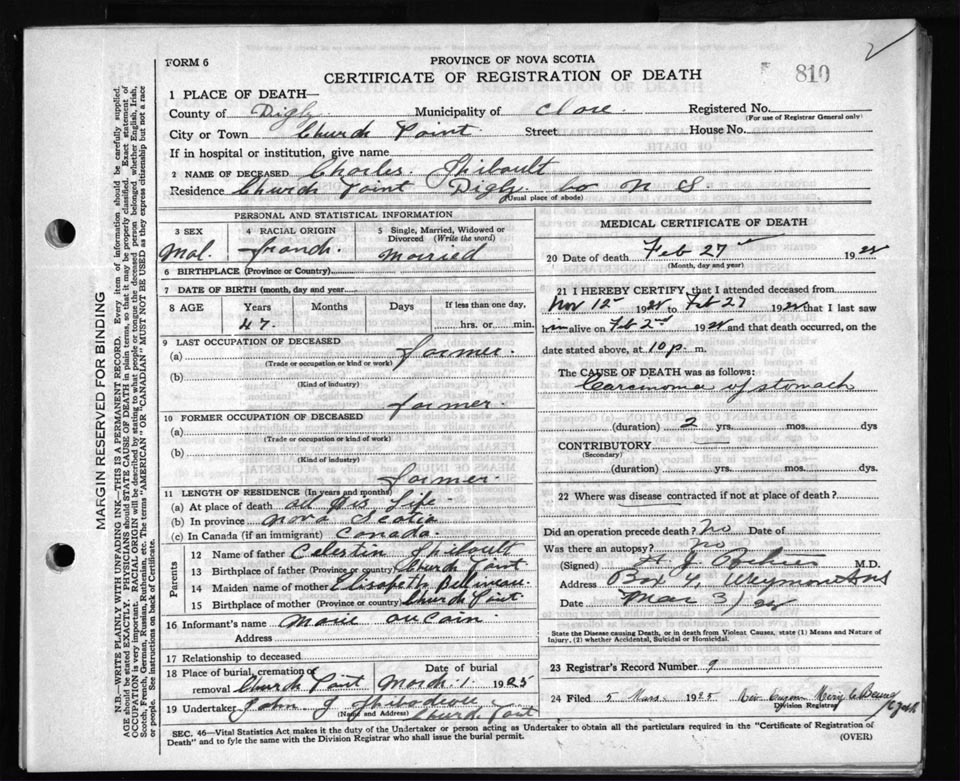 2
FORM 6
PROVINCE OF NOVA SCOTIA
CERTIFICATE OF REGISTRATION OF DEATH
810
1 PLACE OF DEATH—
County of Digby Municipality of Clare. Registered No.
(For use of Registrar General only)
City or Town Church Point Street House No.
If in hospital or institution, give name
2 NAME OF DECEASED Charles Thibault
Residence Church Point Digby co N S.
(Usual place of abode)
PERSONAL AND STATISTICAL INFORMATION
3 SEX
Mal.
4 RACIAL ORIGIN
franch.
5 Single, Married, Widowed or Divorced (Write the word)
Married
6 BIRTHPLACE (Province or Country)
7 DATE OF BIRTH (month, day and year)
8 AGE Years Months Days If less than one day,
47. hrs. or min.
9 LAST OCCUPATION OF DECEASED
(a) farmer.
(Trade or occupation or kind of work)
(b)
(Kind of industry)
farmer.
10 FORMER OCCUPATION OF DECEASED
(a)
(Trade or occupation or kind of work)
(b)
(Kind of industry)
farmer.
11 LENGTH OF RESIDENCE (In years and months)
(a) At place of death all His Life
(b) In province Nova Scotia
(c) In Canada (if an immigrant) Canada.
Parents
12 Name of father Celestin Thibault
13 Birthplace of father (Province or country) Church Point
14 Maiden name of mother Elisabeth Belliveau
15 Birthplace of mother (Province or country) Church Point
16 Informant's name Marie aucoin
Address
17 Relationship to deceased
18 Place of burial, cremation or removal Church Point Date of burial March. 1. 1925
19 Undertaker John J Thibodeau
(Name and Address) Church Point
MEDICAL CERTIFICATE OF DEATH
20 Date of death Feb 27 19
(Month, day and year)
21 I HEREBY CERTIFY, that I attended deceased from
Nov 12 19 to Feb 27 19 that I last saw
him alive on Feb 2nd 19 and that death occurred, on
date stated above, at 10 p. m.
The CAUSE OF DEATH was as follows:
Carcinoma of stomach
(duration) 2 yrs. mos. dys
CONTRIBUTORY
(Secondary)
(duration) yrs. mos. dys.
22 Where was disease contracted if not at place of death?
Did an operation precede death? No Date of
Was there an autopsy? No
(Signed) M.D.
Address Weymouth NS
Date Mar 3/
State the Disease causing Death, or in death from Violent Causes, state (1) Means and Nature of Injury, (2) whether Accidental, Suicidal or Homicidal.
23 Registrar's Record Number 9
24 Filed 5 Mars 1925
Division Registrar
SEC. 46—Vital Statistics Act makes it the duty of the Undertaker or person acting as Undertaker to obtain all the particulars required in the "Certificate of Registration of
Death" and to fyle the same with the Division Registrar who shall issue the burial permit.
(OVER)
MARGIN RESERVED FOR BINDING
N.B.—WRITE PLAINLY WITH UNFADING INK—THIS IS A PERMANENT RECORD. Every item of information should be carefully supplied.
AGE should be stated EXACTLY. PHYSICIANS should STATE CAUSE OF DEATH in plain terms, so that it may be properly classified. Exact statement of
OCCUPATION is very important. RACIAL ORIGIN will be described by stating to what people or tongue the deceased person belonged whether English, Irish,
Scotch, French, German, Russian, Ruthenian, etc. The terms "AMERICAN" OR "CANADIAN" MUST NOT BE USED as they express citizenship but not a race
or people. See instructions on back of Certificate.